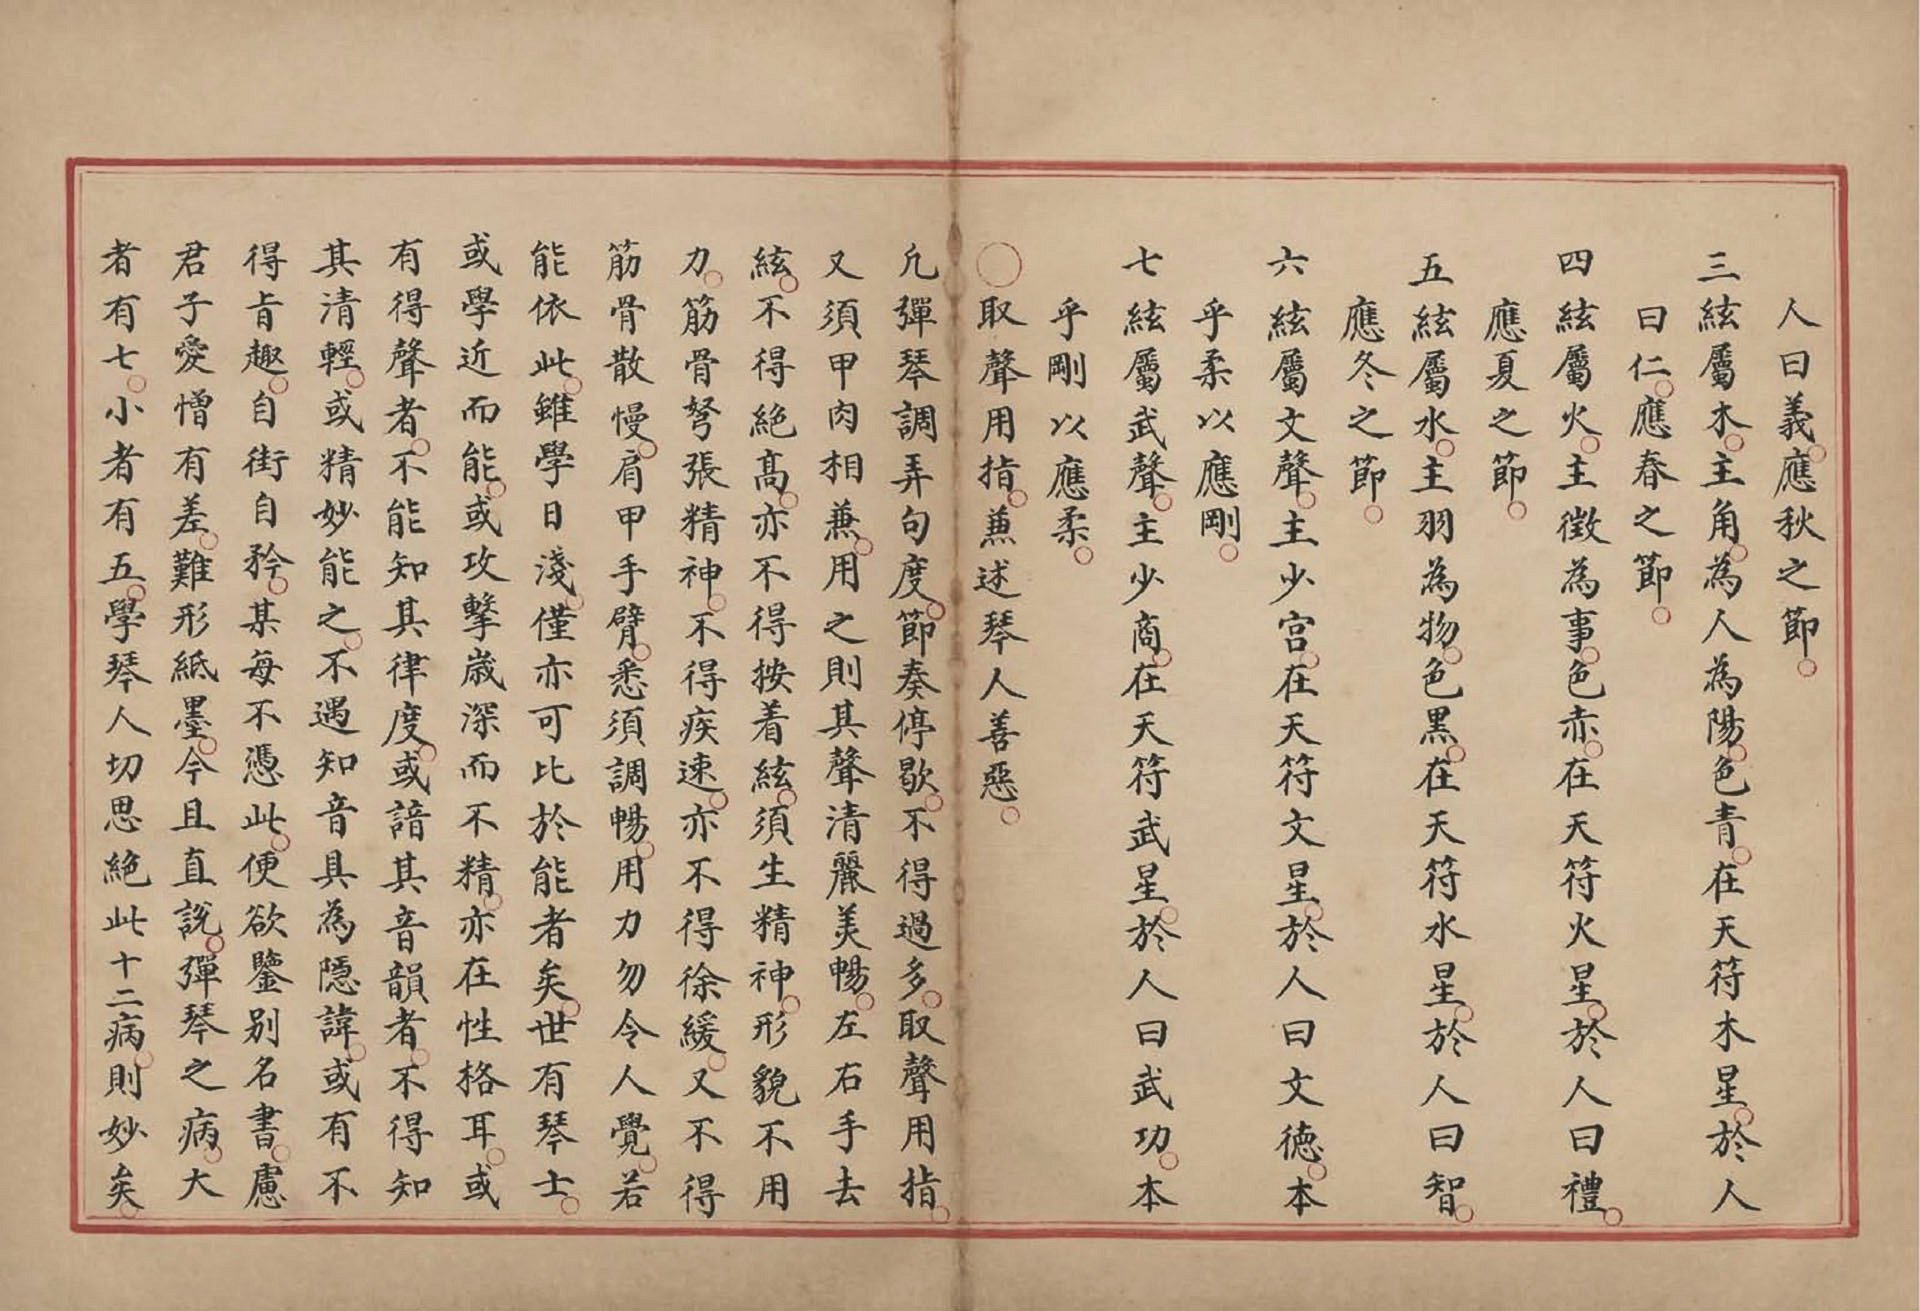 人曰義應秋之節
三絃屬木主角為人為陽色青在天符木星於人
曰仁應春之節
四絃屬火主徴為事色赤在天符火星於人曰禮
應夏之節
五絃屬水主羽為物色黑在天符水星於人曰智
應冬之節
六絃屬文聲主少宮在天符文星於人曰文德本
乎柔以應剛
七絃屬武聲主少商在天符武星於人曰武功本
乎剛以應柔
○取聲用指兼述琴人善惡
凢彈琴調弄句度節奏停歇不得過多取聲用指
又須甲肉相兼用之則其聲清麗美暢左右手去
絃不得絶髙亦不得按着絃須生精神形貌不用
力筋骨弩張精神不得疾速亦不得徐緩又不得
筋骨散慢肩甲手臂悉須調暢用力勿令人覺若
能依此雖學日淺僅亦可比於能者矣世有琴士
或學近而能或攻擊歲深而不精亦在性格耳或
有得聲者不能知其律度或諳其音韻者不得知
其清輕或精妙能之不遇知音具為隱諱或有不
得㫖趣自街自矜某每不憑此便欲鑒别名書慮
君子愛憎有差難形紙墨今且直說彈琴之病大
者有七小者有五學琴人切思絶此十二病則妙矣